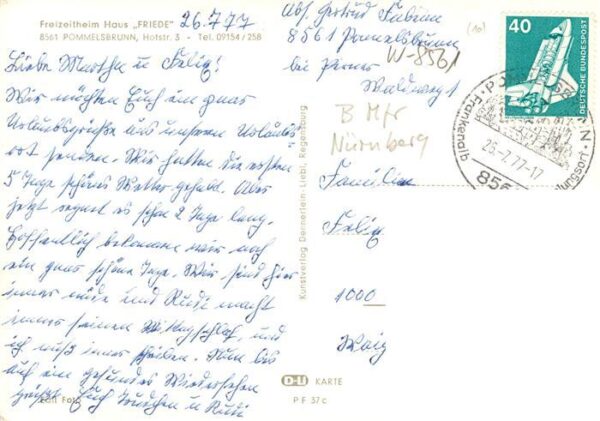 Freizeitheim Haus „FRIEDE"
8561 POMMELSBRUNN, Hofstr. 3 - Tel. 09154/258
26.7.77
Liebe Martha u Felix!
Wir möchten Euch ein paar
Urlaubsgrüße aus unserem Urlaubs-
ort senden. Wir hatten die ersten
5 Tage schönes Wetter gehabt. Aber
jetzt regnet es schon 2 Tage lang.
Hoffentlich bekommen wir noch
ein paar schöne Tage. Wir sind hier
immer müde und Rudi macht
immer seinen Mittagschlaf, und
ich muß immer. Nun bis
auf ein gesundes Wiedersehen
grüßt Euch u Rudi
Foto
Kunstverlag Dennerlein-Liebl, Regensburg
Abs. Gertrud Fabian
8561 Pommelsbrunn
bei
Waldweg 1
W-8561
B Mfr
Nürnberg
(10)
Familie
Felix
1000
D-U KARTE
P F 37 c
40
DEUTSCHE BUNDESPOST
Frankenalb
26.-7.77-17
856